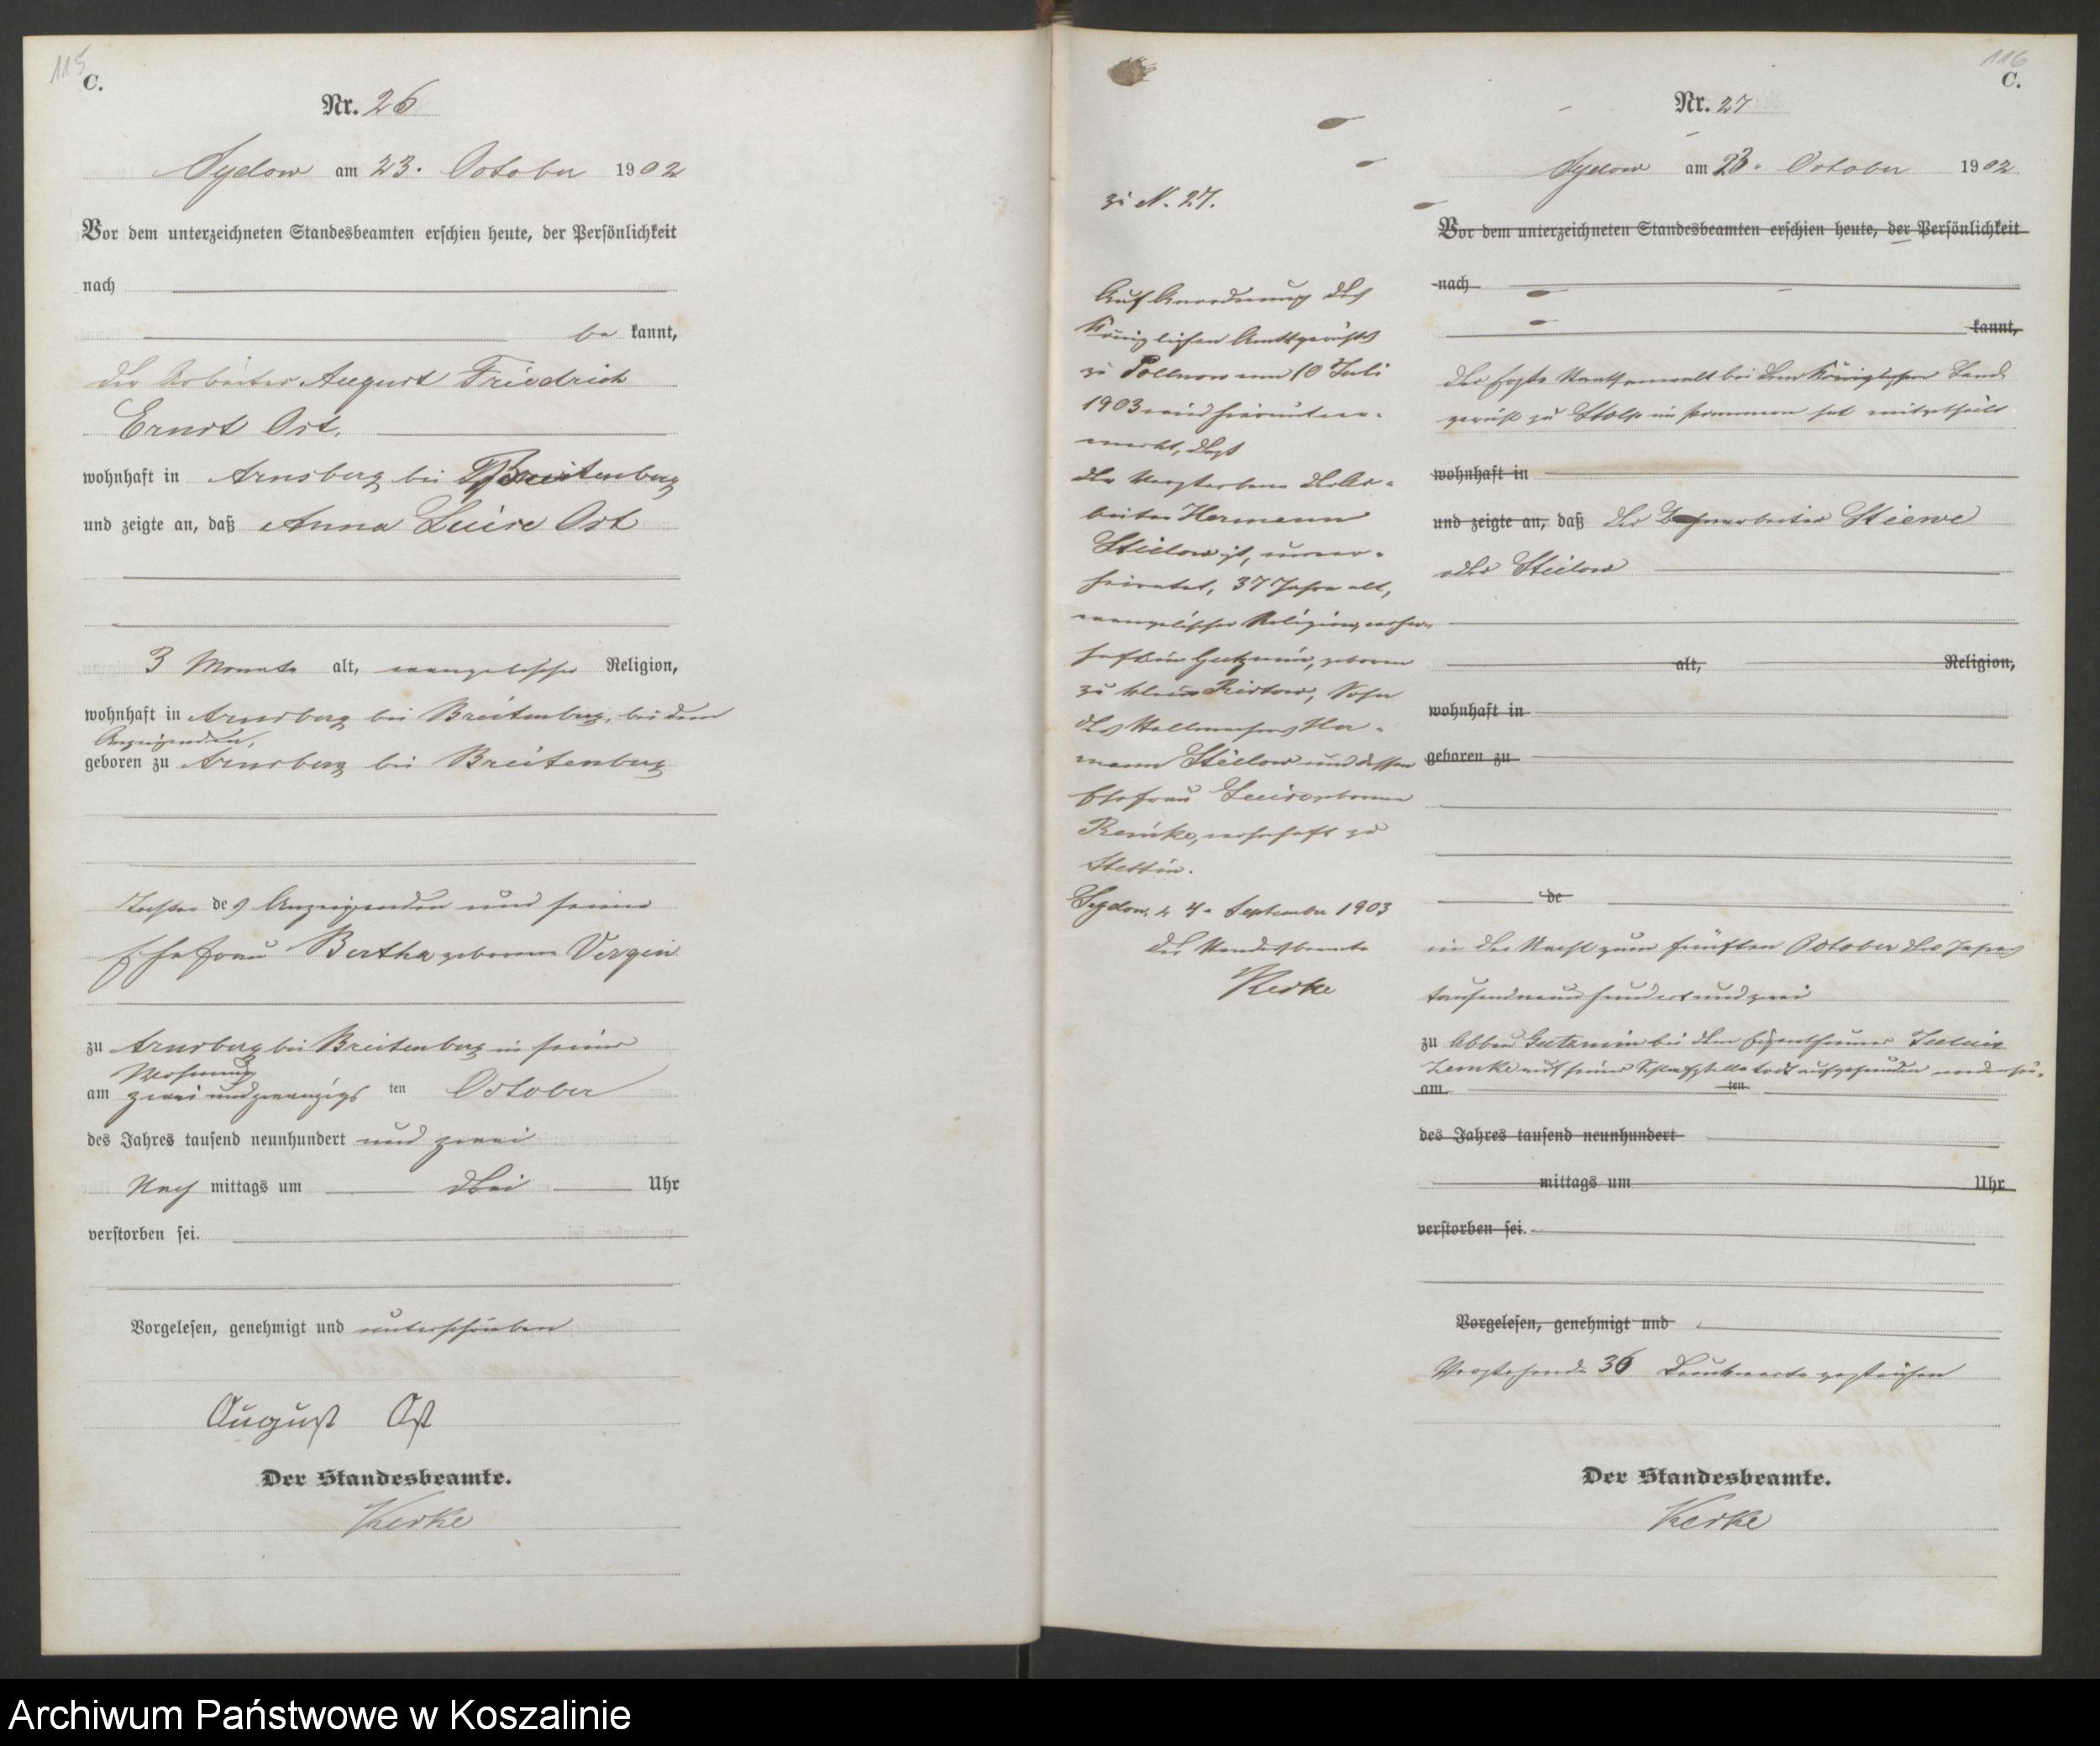 115
C.
Nr. 26
Sydow am 23. October 1902
Vor dem unterzeichneten Standesbeamten erschien heute, der Persönlichkeit
nach
be kannt,
der Arbeiter August Friedrich
Ernst Ost.
wohnhaft in Arnsberg bei Breitenberg
und zeigte an, daß Anna Luise Ost
3 Monate alt, evangelischer Religion,
wohnhaft in Arnsberg bei Breitenberg, bei dem
Anzeigenden,
geboren zu Arnsberg bei Breitenberg
Tochter des Anzeigenden und seiner
Ehefrau Bertha geborene Vergin
zu Arnsberg bei Breitenberg in seiner
Wohnung
am zwei und zwanzigsten October
des Jahres tausend neunhundert und zwei
Nach mittags um drei Uhr
verstorben sei.
Vorgelesen, genehmigt und unterschrieben
August Ost
Der Standesbeamte.
Kerke
zu N. 27.
Auf Anordnung des
Königlichen Amtsgerichts
zu Pollnow vom 10 Juli
1903 wird hierunter ver-
merkt, daß
der Verstorbene der Ar-
beiter Hermann
Stielow ist, unver-
heiratet, 37 Jahre alt,
evangelischer Religion, wohn-
haft in Gutzmin, geboren
zu klein Ristow, Sohn
des Stellmachers Her-
mann Stielow und dessen
Ehefrau Luise geborene
Reinke, wohnhaft zu
Stettin.
Sydow, d 4. September 1903
Der Standesbeamte
Kerke
116
C.
Nr. 27
Sydow am 23. October 1902
Vor dem unterzeichneten Standesbeamten erschien heute, der Persönlichkeit
nach
kannt,
Der Erste Staatsanwalt bei dem Königlichen Land-
gericht zu Stolp in Pommern hat mitgetheilt
wohnhaft in
und zeigte an, daß der Bahnarbeiter Stiewe
oder Stielow
alt, Religion,
wohnhaft in
geboren zu
de
in der Nacht zum fünften October des Jahres
tausend neun hundert und zwei
zu Abbau Gutzmin bei dem Eigenthümer Julius
Lemke auf seiner Schlafstelle todt aufgefunden worden sei.
am ten
des Jahres tausend neunhundert
mittags um Uhr
verstorben sei.
Vorgelesen, genehmigt und
Vorstehende 36 Druckworte gestrichen
Der Standesbeamte.
Kerke
Archiwum Państwowe w Koszalinie